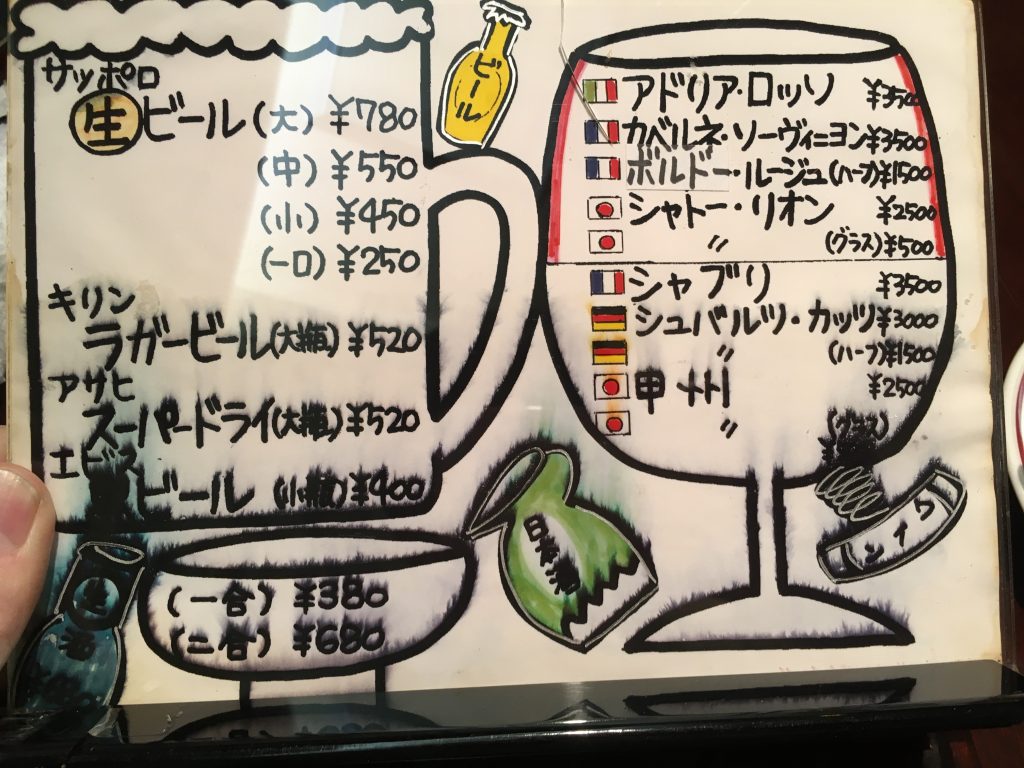 サッポロ
生ビール(大) ¥780
(中) ¥550
(小) ¥450
(一口) ¥250
キリン
ラガービール(大瓶) ¥520
アサヒ
スーパードライ(大瓶) ¥520
エビス
ビール (小瓶) ¥400
ビール
アドリア・ロッソ
カベルネ・ソーヴィニヨン ¥3500
ボルドー・ルージュ(ハーフ) ¥1500
シャトー・リオン ¥2500
〃 (グラス) ¥500
シャブリ ¥3500
シュバルツ・カッツ ¥3000
〃 (ハーフ) ¥1500
甲州 ¥2500
〃 (グラス)
ワイン
日本酒
(一合) ¥380
(二合) ¥680
生
酒